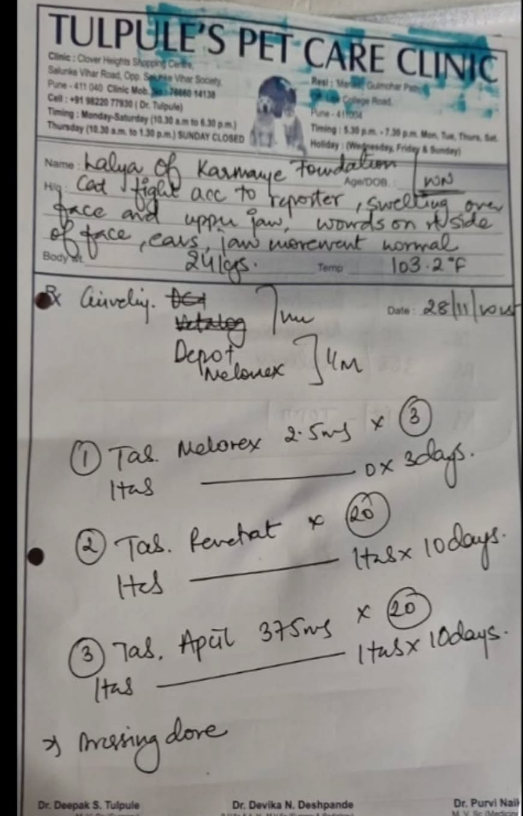 TULPULE'S PET CARE CLINIC
Clinic : Clover Heights Shopping Centre,
Salunke Vihar Road, Opp. Salunke Vihar Society,
Pune - 411 040 Clinic Mob. No. 76660 14138
Cell : +91 98220 77930 ( Dr. Tulpule)
Timing : Monday-Saturday (10.30 a.m to 6.30 p.m.)
Thursday (10.30 a.m. to 1.30 p.m.) SUNDAY CLOSED
Resi : Gulmohar
College Road,
Pune - 411004
Timing : 5.30 p.m. - 7.30 p.m. Mon, Tue, Thurs, Sat.
Holiday : (Wednesday, Friday & Sunday)
Name : Kalya of Karmaye Foundation
Age/DOB.
H/o fight acc to reporter, swelling over
face and upper jaw, wounds on side
of face, ears, jaw movement normal
Body wt. 24kgs. Temp 103.2°F
Rx Date : 28/11/
Depot
Melonex
① Tab. Melonex 2.5mg x ③
1tab — 0 x 3days.
② Tab. x ⑳
1tab — 1tab x 10days.
③ Tab. 375mg x ⑳
1tab — 1tab x 10days.
Dressing done
Dr. Deepak S. Tulpule
Dr. Devika N. Deshpande
Dr. Purvi Naik